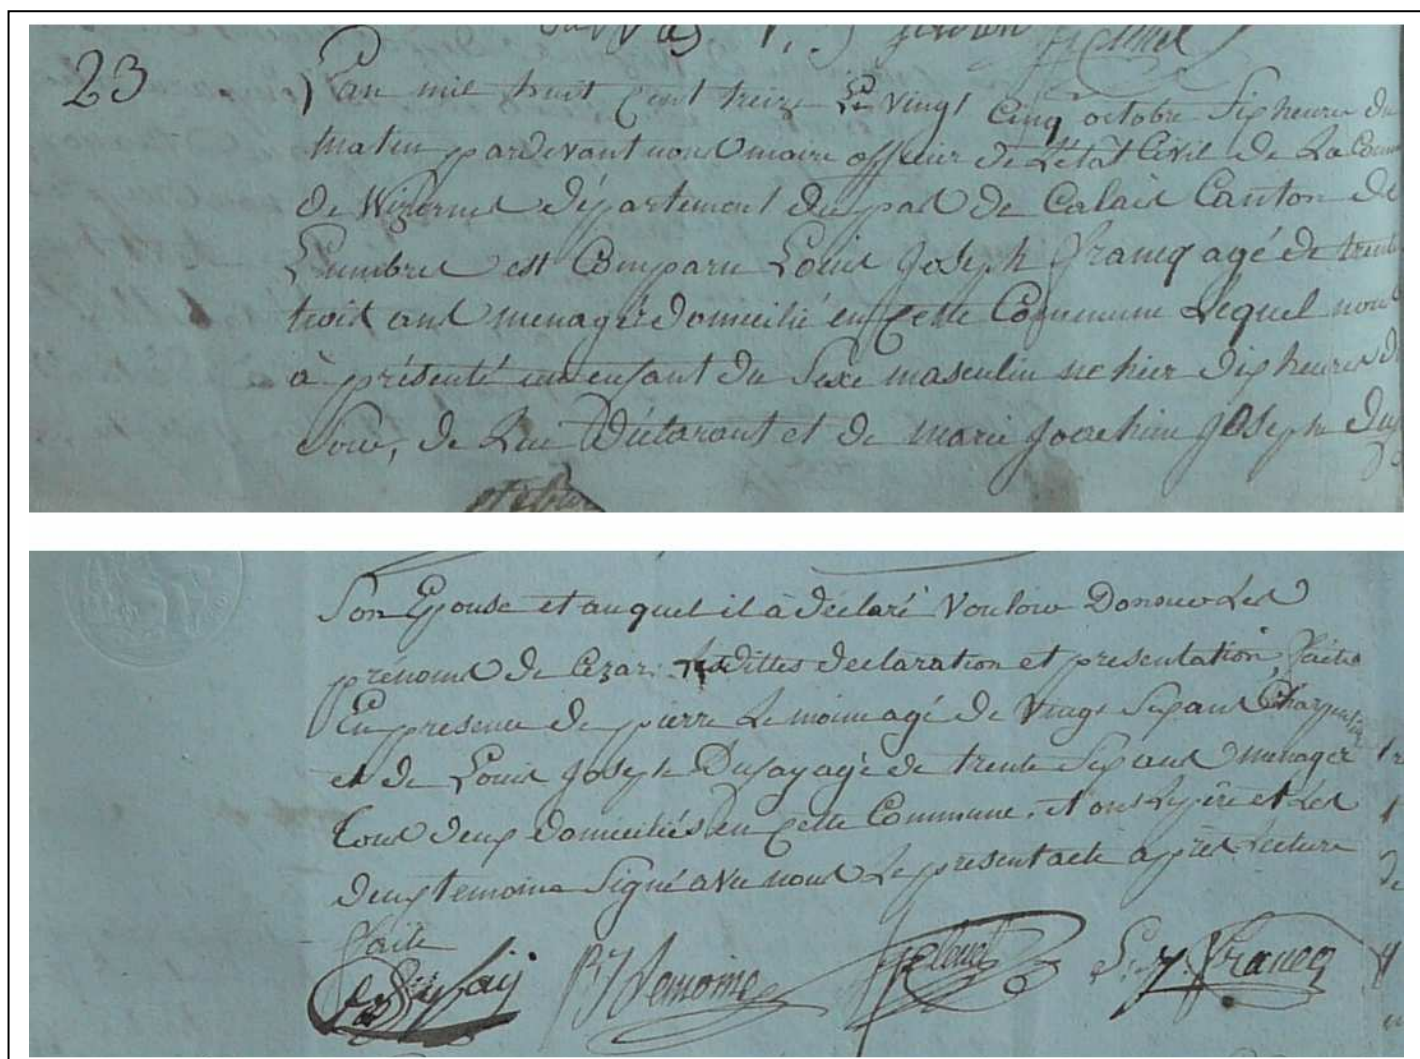 23
L'an mil huit Cent treize Le vingt cinq octobre Six heures du
matin pardevant nous maire officier de L'état Civil de La Com
de Wizernes département du pas de Calais Canton de
Lumbres est Comparu Louis Joseph Francq agé de trente
trois ans menager domicilié en Cette Commune Lequel nous
à présenté un enfant du Sexe masculin né hier dix heures du
Soir, de Lui Déclarant et de marie Joachim Joseph Duf
Son Epouse et auquel il à déclaré Vouloir Donner Les
prénoms de Cezar. Lesdittes declaration et presentation faites
En presence de pierre Lemoine agé de Vingt Six ans Charpentier
et de Louis Joseph Dufay agé de trente Six ans menager
Tous deux domiciliés en Cette Commune. et ont Le père et Les
deux temoins Signé avec nous Le present acte après Lecture
faite
Dufay PJ Lemoine L. J. Francq